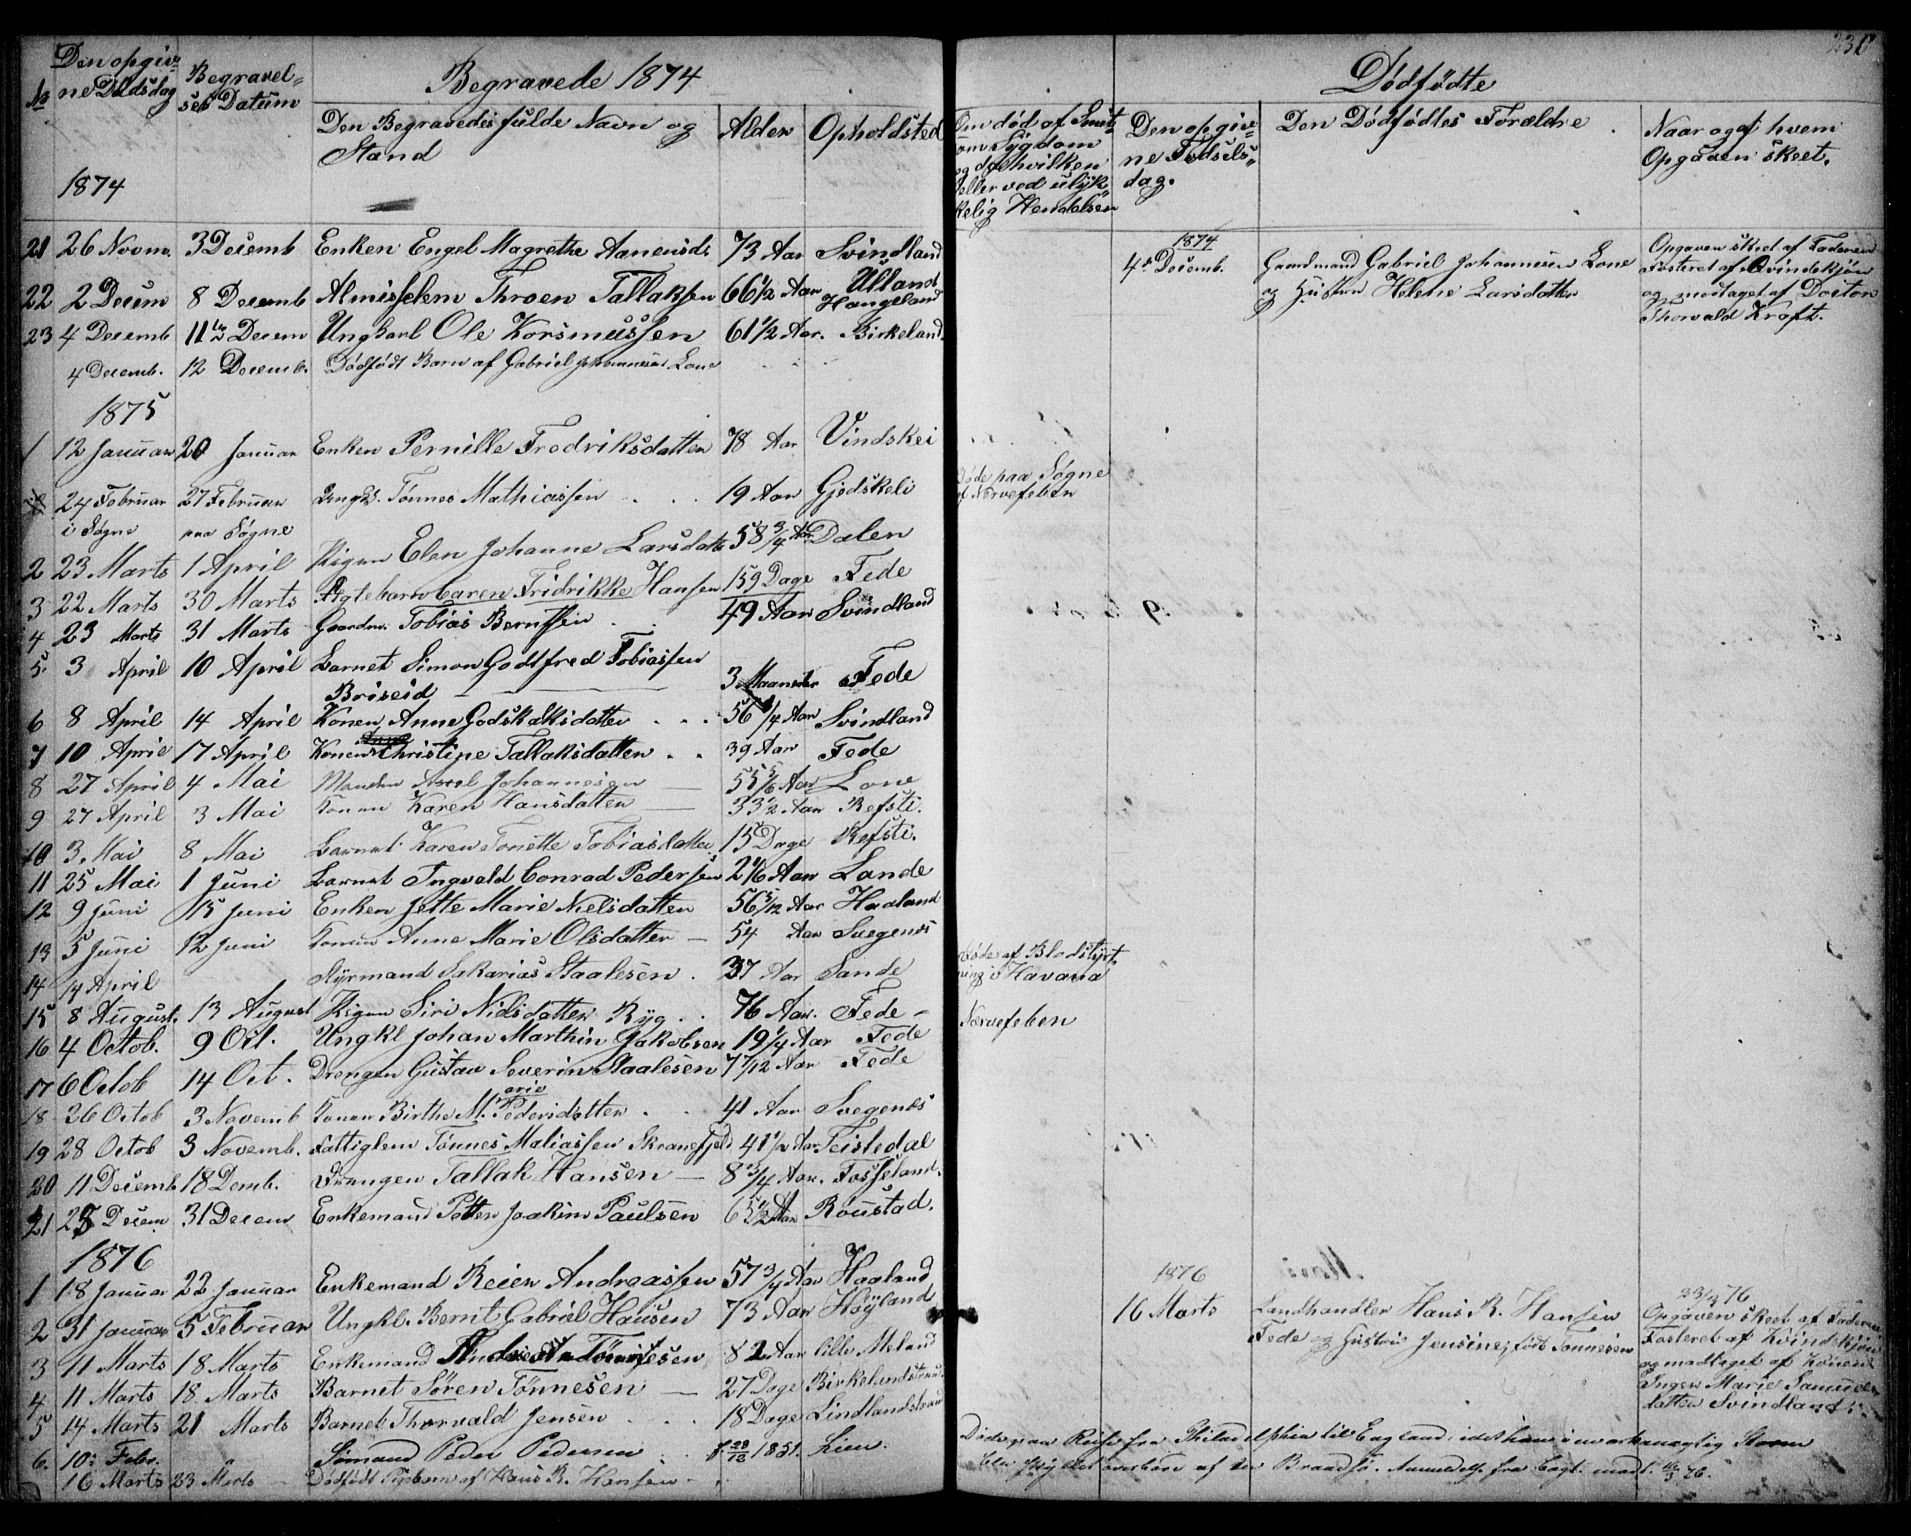 230
Begravede 1874
Dødfødte
№
Den opgiv=
ne Dødsdag
Begravel=
ses Datum
Den Begravedes fulde Navn og
Stand
Alder
Opholdsted
Om død af
om Sygdom
og da hvilken
eller ved ulyk
kelig Hendelsen
Den opgive=
ne Fødsels=
dag.
Den Dødfødtes Forældre
Naar og af hvem
Opgaven skeet.
1874
21 26 Novm. 3 Decemb Enken Engel Magrethe Aanensd. 73 Aar Svindland
22 2 Decem 8 Decemb Almisselem Throen Tallaksen 66 1/2 Aar Ulland
Haugeland
23 4 Decemb 11te Decem Ungkarl Ole Korsmussen 61 1/2 Aar. Birkeland
4 Decemb. 12 Decemb. Dødfødt Barn af Gabriel Johannesen Lone
1874
4de Decemb. Gaardmand Gabriel Johannesen Lone
og Hustru Helene Larsdatter
Opgaven skeet af Faderen
Fosteret af Qvindekjøn
og modtaget af Doctor
Thorvald Kraft.
1875
1 12 Januar 20 Januar Enken Pernille Fredriksdatter 78 Aar Vindskei
24 Februar 27 Februar Ungkl. Tønnes Mathiassen 19 Aar Gjedskeli
i Søgne paa Søgne
Døde paa Søgne
af Nervefeber
2 23 Marts 1 April Pigen Elen Johanne Larsdatter 58 3/4 Aar Dalen
3 22 Marts 30 Marts Ægtebarn Caren Fridrikke Hansen 159 Dage Fede
4 23 Marts 31 Marts Gaardm. Tobias Berntsen 49 Aar Svindland
5. 3 April 10 April Barnet Simon Godtfred Tobiassen
Briseid 3 Maaneder Fede
6 8 April 14 April Konen Anne Godskalksdatter 56 1/4 Aar Svindland
7 10 April 17 April Konen Christine Tallaksdatter 39 Aar Fede
8 27 April 4 Mai Manden Axel Johannesen 55 5/6 Aar Lone
9 27 April 3 Mai Konen Karen Hansdatter 33 1/2 Aar Refsti.
10 3 Mai 8 Mai Barnet Karen Tonette Tobiasdatter 15 Dage Refsti.
11 25 Mai 1 Juni Barnet Ingvald Conrad Pedersen 2 1/6 Aar Lande
12 9 Juni 15 Juni Enken Jette Marie Nielsdatter 56 5/12 Aar Hadland
13 5 Juni 12 Juni Konen Anne Marie Olsdatter 54 Aar Svegenes
14 14 April Styrmand Sakarias Staalesen 37 Aar Sande
Døde af Blodstyrt
ning i Havana
15 8 August. 13 August Pigen Siri Nilsdatter Ryg 76 Aar. Fede
16 4 Octob. 9 Oct. Ungkl Johan Marthin Jakobsen 19 1/4 Aar Fede
Nervefeber
17 6 Octob 14 Oct. Drengen Gustav Severin Staalesen 7 7/12 Aar Fede
18 26 Octob 3 Novemb Konen Birthe Marie Pedersdatter 41 Aar Svegenes
19 28 Octob 3 Novemb. Fattiglem Tønnes Maliassen Skranefjeld 41 1/2 Aar. Feistedal
20 11 Decemb 18 Demb. Drengen Tallak Hansen 8 3/4 Aar. Fosseland.
21 25 Decem 31 Decem Enkemand Petter Joakim Paulsen 65 1/2 Aar Roustad.
1876
1 18 Januar 22 Januar Enkemand Reier Andreassen 57 3/4 Aar Haaland
2 31 Januar 5 Februar Ungkl. Bernt Gabriel Hansen 73 Aar Høyland
3 11 Marts 18 Marts Enkemand Andreas Tønnesen 82 Aar Lille Meland
4 11 Marts 18 Marts Barnet Søren Tønnesen 27 Dage Birkelandstrand
5 14 Marts 21 Marts Barnet Thorvald Jensen 18 Dage Lindlandstrand
6. 10. Febr. Sømand Peder Pedersen f. 28/12 1851. Lien.
16 Marts 23 Marts Dødfødt Pigebarn af Hans R. Hansen
1876
16 Marts Landhandler Hans R. Hansen
Fede og Hustru Jensine, født Tønnesen
23/3 76
Opgaven skeet af Faderen
Fosteret af Kvindekjøn
og modtaget af Konen
Inger Marie Samuels
datter Svindland
Døde paa Reise fra Philadelphia til England, idet han i en orkanagtig Storm
blev skyllet overbord af en Brandsø. Anmeldelse fra Capt. modt. 76.